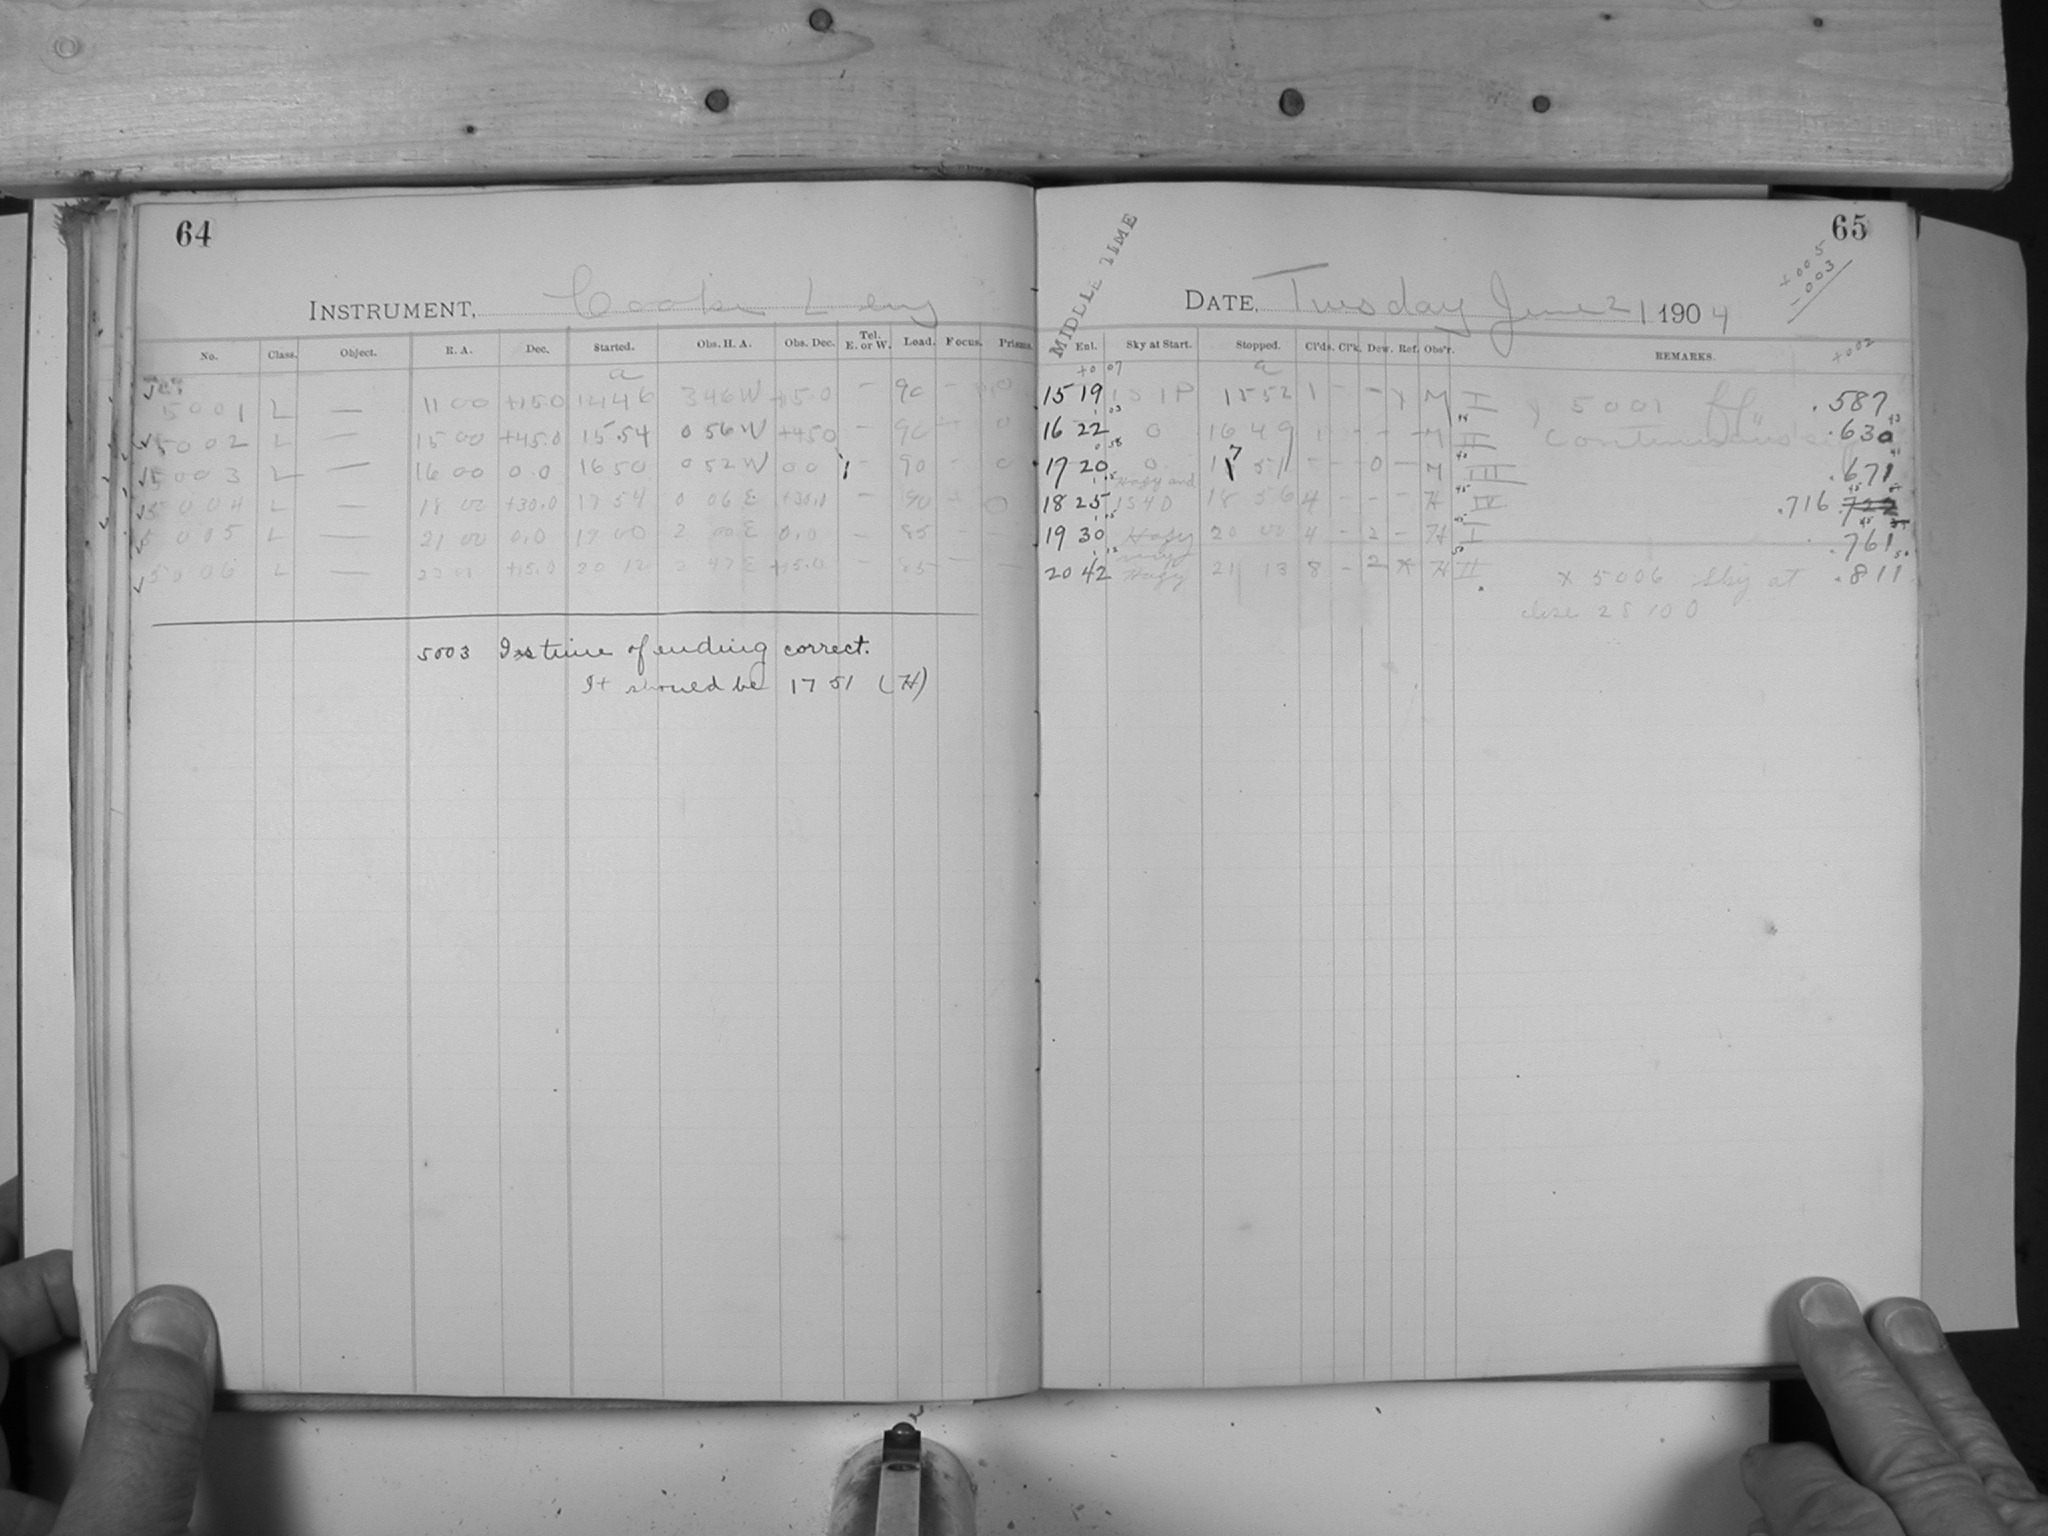 64
INSTRUMENT, Cooke Lens
No. Class. Object. R. A. Dec. Started. Obs. H. A. Obs. Dec. Tel. E. or W. Load. Focus. Prisms.
a
5001 L — 11 00 +15.0 14 46 3 46 W +15.0 – 90 –
5002 L — 15 00 +45.0 15 54 0 56 W +45 0 – 90 – 0
5003 L — 16 00 0.0 16 50 0 52 W 0 0 – 90 – 0
5004 L — 18 00 +30.0 17 54 0 06 E +30.0 – 90 – 0
5005 L — 21 00 0.0 19 00 2 00 E 0.0 – 85 – –
5006 L — +15.0 20 12 2 47 E +15.0 – 85 – –
5003 Is time of ending correct.
It should be 17 51 (H)
65
MIDDLE TIME
+005
-003
DATE, Tuesday June 21 1904
Enl. Sky at Start. Stopped. Cl'ds. Cl'k. Dew. Ref. Obs'r. REMARKS.
+002
+0 07 a
15 19 15 52 1 – – x M I x 5001 .587
16 22 0 16 49 1 – – – M II Continuous .630
17 20 0 17 51 – – 0 – M III .671
18 25 Hazy and 18 56 4 – – – H IV .716
19 30 Hazy 20 00 4 – 2 – H I .761
20 42 Hazy 21 13 8 – 2 x H II x 5006 Sky at .811
close 28 10 0